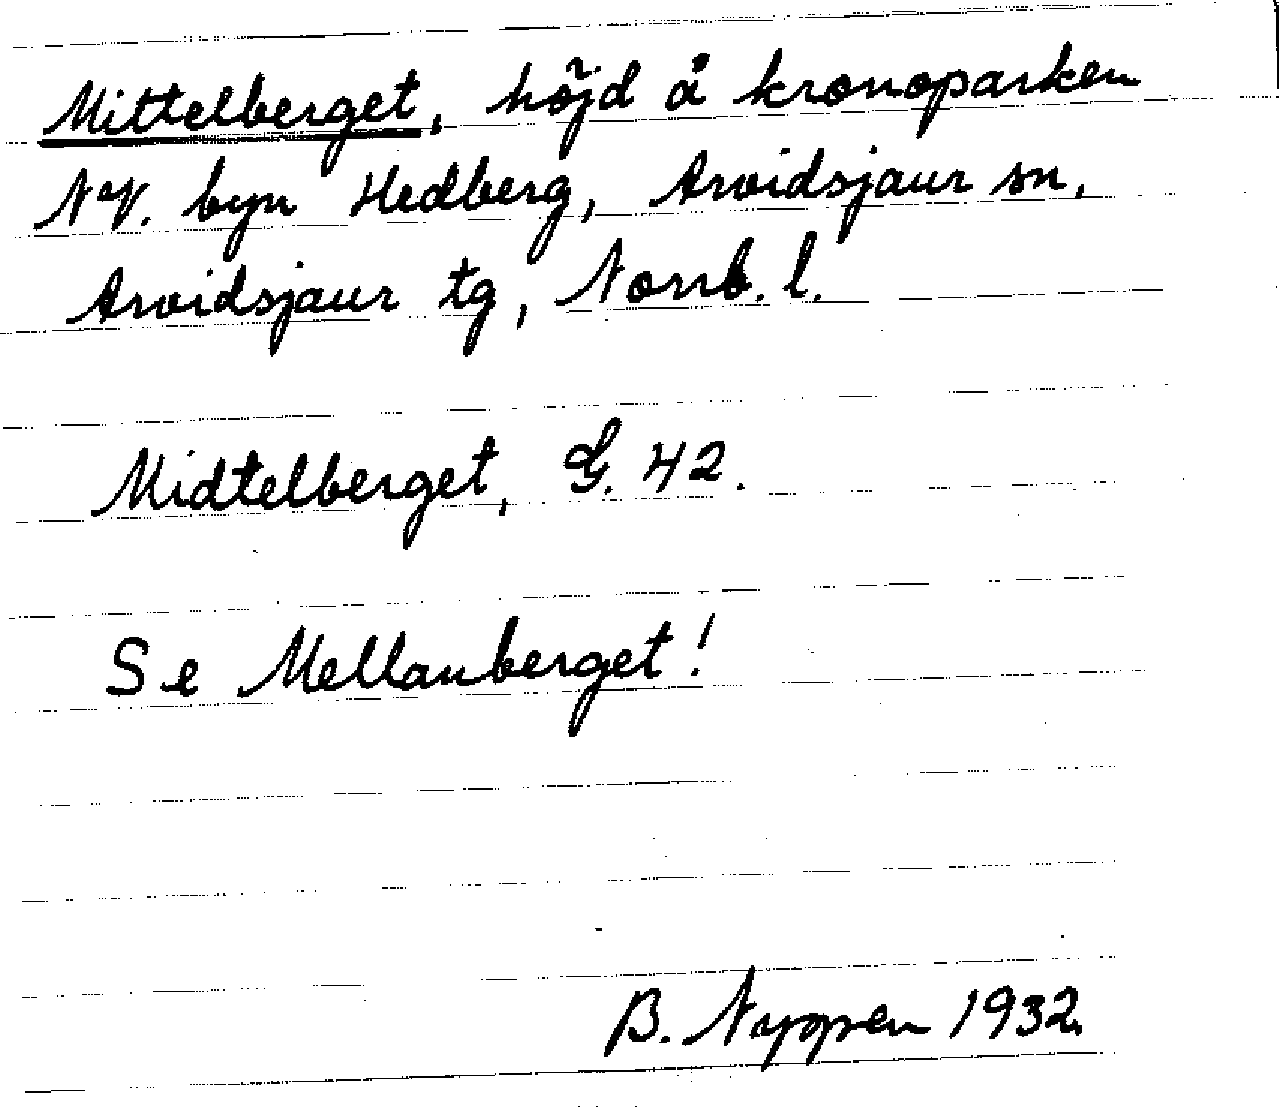 Mittelberget, höjd å kronoparken
NV. byn Hedberg, Arvidsjaur sn,
Arvidsjaur tg, Norrb. l.
Midtelberget, G. 42.
Se Mellanberget!
B. Nyppen 1932.